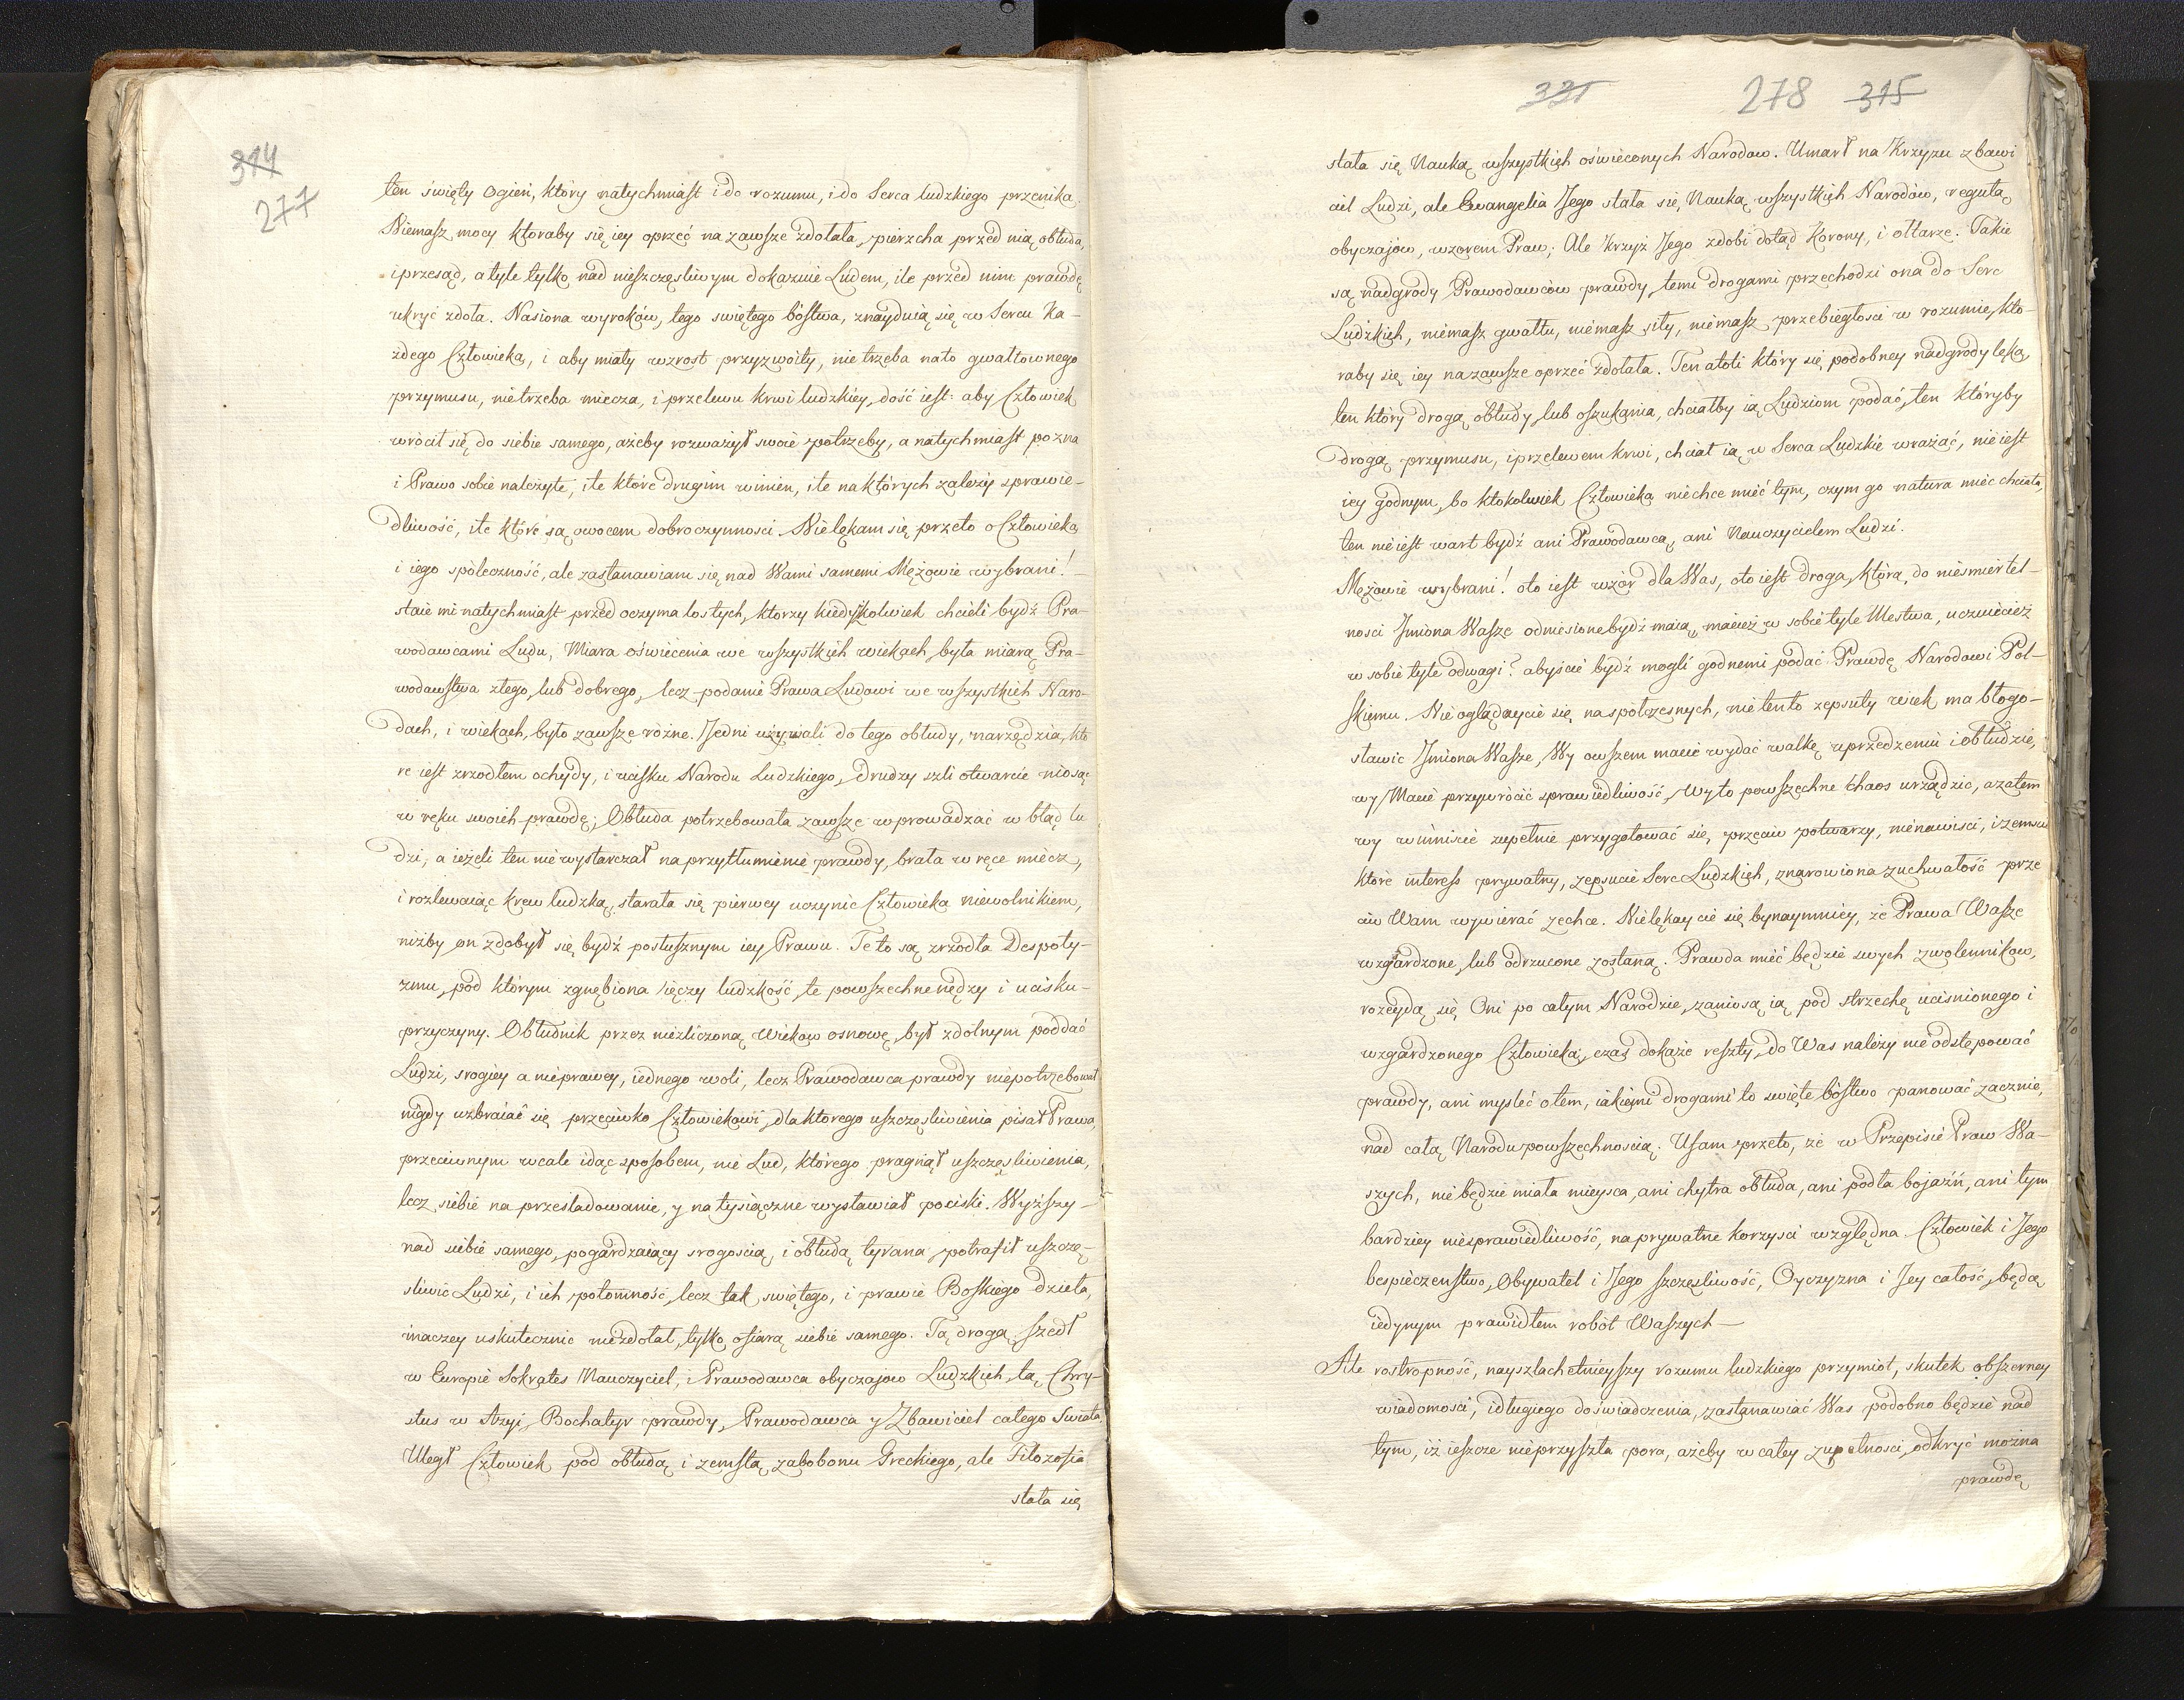 314
277
ten święty Ogień, który natychmiast i do rozumu, i do Serca ludzkiego przenika.
Niemasz mocy ktoraby się iey oprzeć na zawsze zdołała, pierzcha przed nią obłuda,
i przesąd, a tyle tylko nad nieszczęsliwym dokazuie Ludem, ile przed nim prawdę
ukryć zdoła. Nasiona wyroków, tego swiętego bóstwa, znayduią się w Sercu Ka-
żdego Człowieka, i aby miały wzrost przyzwoity, nie trzeba nato gwałtownego
przymusu, nietrzeba miecza, i przelewu krwi ludzkiéy, dość iest: aby Człowiek
wrócił się do siebie samego, ażeby rozważył swoie potrzeby, a natychmiast pozna
i Prawo sobie należyte, i te które drugim winien, i te na których zależy sprawie-
dliwość, i te które są owocem dobroczynnosci. Nie lękam się przeto o Człowieka
i iego społeczność, ale zastanawiam się nad Wami samemi Mężowie wybrani!
staie mi natychmiast przed oczyma los tych, ktorzy kiedyżkolwiek chcieli bydź Pra-
wodawcami Ludu, Miara oświecenia we wszystkich wiekach, była miarą Pra-
wodawstwa złego, lub dobrego, lecz podanie Prawa Ludowi we wszystkich Naro-
dach, i wiekach, było zawsze różne. Jedni używali do tego obłudy, narzędzia, kto
re iest zrzodłem ochydy, i ucisku Narodu Ludzkiego, Drudzy szli otwarcie niosąc
w ręku swoich prawdę; Obłuda potrzebowała zawsze wprowadzać w błąd lu
dzi, a ieżeli ten nie wystarczał na przytłumienie prawdy, brała w ręce miecz,
i rozlewaiąc krew ludzką, starała się pierwey uczynic Człowieka niewolnikiem,
niżby on zdobył się bydź posłusznym iey Prawu. Te to są zrzodła Despoty-
zmu, pod którym zgnębiona ięczy ludzkość, te powszechne nędzy i ucisku-
przyczyny. Obłudnik przez niezliczoną Wiekow osnowę, był zdolnym poddać
Ludzi, srogiey a nieprawey, iednego woli, lecz Prawodawca prawdy niepotrzebował
nigdy uzbraiać się przeciwko Człowiekowi, dla ktorego uszczęsliwienia pisał Prawa,
przeciwnym wcale idąc sposobem, nie Lud, którego pragnął uszczęsliwienia,
lecz siebie na przesladowanie, y na tysiączne wystawiał pociski. Wyższy-
nad siebie samego, pogardzaiący srogoscią, i obłudą tyrana, potrafił uszczę-
sliwic Ludzi, i ich potomność, lecz tak swiętego, i prawie Boskiego dzieła,
inaczey uskutecznic niezdołał, tylko ofiarą siebie samego. Tą drogą szedł
w Europie Sokrates Nauczyciel, i Prawodawca obyczajow Ludzkich, tą Chry-
stus w Azyi, Bochatyr prawdy, Prawodawca y Zbawiciel całego Swiata
Uległ Człowiek pod obłudą i zemstą zabobonu Greckiego, ale Filozofia
stała się
331 278 315
stała się Nauką wszystkich oświeconych Narodow. Umarł na Krzyzu zbawi
ciel Ludzi, ale Ewangelia Jego stała się, Nauką wszystkich Narodów, regułą
obyczajów, wzorem Praw; Ale Krzyż Jego zdobi dotąd Korony, i ołtarze. Takie
są nadgrody Prawodawców prawdy, temi drogami przechodzi ona do Serc
Ludzkich, niémasz gwałtu, niémasz siły, niémasz przebiegłosci w rozumie, któ-
raby się iey nazawsze oprzeć zdołała. Ten atoli który się podobney nadgrody lęka,
ten który drogą obłudy, lub oszukania, chciałby ią Ludziom podać, ten któryby
drogą przymusu, i przelewem krwi, chciał ią w Serca Ludzkie wrażać, nie iest
iey godnym, bo ktokolwiek Człowieka niechce mieć tym, czym go natura mieć chciała,
ten nie iest wart bydź ani Prawodawcą, ani Nauczycielem Ludzi.
Mężowie wybrani! oto iest wzór dla Was, oto iest droga, którą do nieśmiertel-
nosci Jmiona Wasze odniesione bydź maią, macież w sobie tyle Męstwa, uczuiecież
w sobie tyle odwagi? abyście bydź mogli godnemi podać Prawdę Narodowi Pol-
skiemu. Nie oglądaycie się na społczesnych, nie ten to zepsuty wiek ma błogo-
sławic Jmiona Wasze, Wy owszem macie wydać walkę uprzedzeniu i obłudzie,
wy Macie przywrócić sprawiedliwość, Wy to powszechne Chaos urządzic, a zatem
wy winniscie zupełnie przygotować się, przeciw potwarzy, nienawisci, i zemscie
które interess prywatny, zepsucie Serc Ludzkich, znarowiona zuchwałość prze
ciw Wam wywierać zechce. Nielękaycie się bynaymniey, że Prawa Wasze
wzgardzone, lub odrzucone zostaną. Prawda mieć będzie swych zwolennikow,
rozeydą się Oni po całym Narodzie, zaniosą ią pod strzechę ucisnionego i
wzgardzonego Człowieka, czas dokaże reszty, do Was należy nie odstępować
prawdy, ani mysleć o tem, iakiemi drogami to swięte bóstwo panować zacznie,
nad całą Narodu powszechnoscią: Ufam przeto, że w Przepisie Praw Wa-
szych, nie będzie miała mieysca, ani chytra obłuda, ani podła bojaźń, ani tym
bardziey niesprawiedliwość, na prywatne korzysci względna. Człowiek i Jego
bespieczenstwo, Obywatel i Jego szczęsliwość, Oyczyzna i Jey całość, będą
iedynym prawidłem robót Waszych—
Ale rostropność, nayszlachetnieyszy rozumu ludzkiego przymiot, skutek obszerney
wiadomosci, i długiego doświadczenia, zastanawiać Was podobno będzie nad
tym, iż ieszcze nieprzyszła pora, ażeby w całey zupełnosci, odkryć można
prawdę